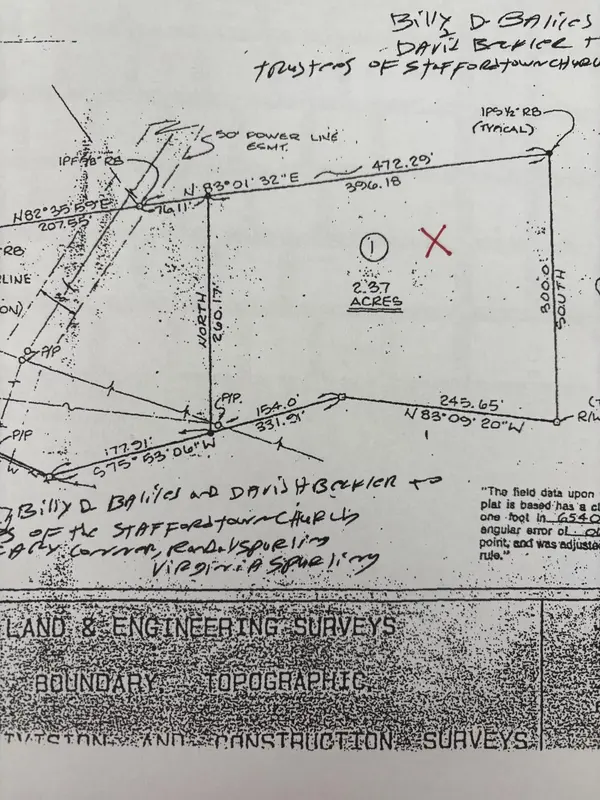 Billy D. BALILES
2
DAVID BECKLER T
trustees OF STAFFORDTOWN CHURC
IPS ½" RB
(TYPICAL)
50' POWER LINE
ESMT.
IPF 3/8" RB
N 83°01'32"E
472.29'
396.18
76.11'
N82°35'59"E
207.55'
RB
RLINE
ON)
1
X
2.37
ACRES
NORTH
260.17'
300.0'
SOUTH
P/P
P/P.
P/P
154.0'
331.91'
245.65'
N 83°09'20"W
177.91'
S 75°53'06"W
R/W
Billy D BALILES and DAVID H BECKLER to
OF the STAFFORDTOWN CHURCH
Virginia Spurling
"The field data upon
plat is based has a cl
one foot in 6540
angular error of
point, and was adjuste
rule."
LAND & ENGINEERING SURVEYS
BOUNDARY, TOPOGRAPHIC,
IVISION AND CONSTRUCTION SURVEYS